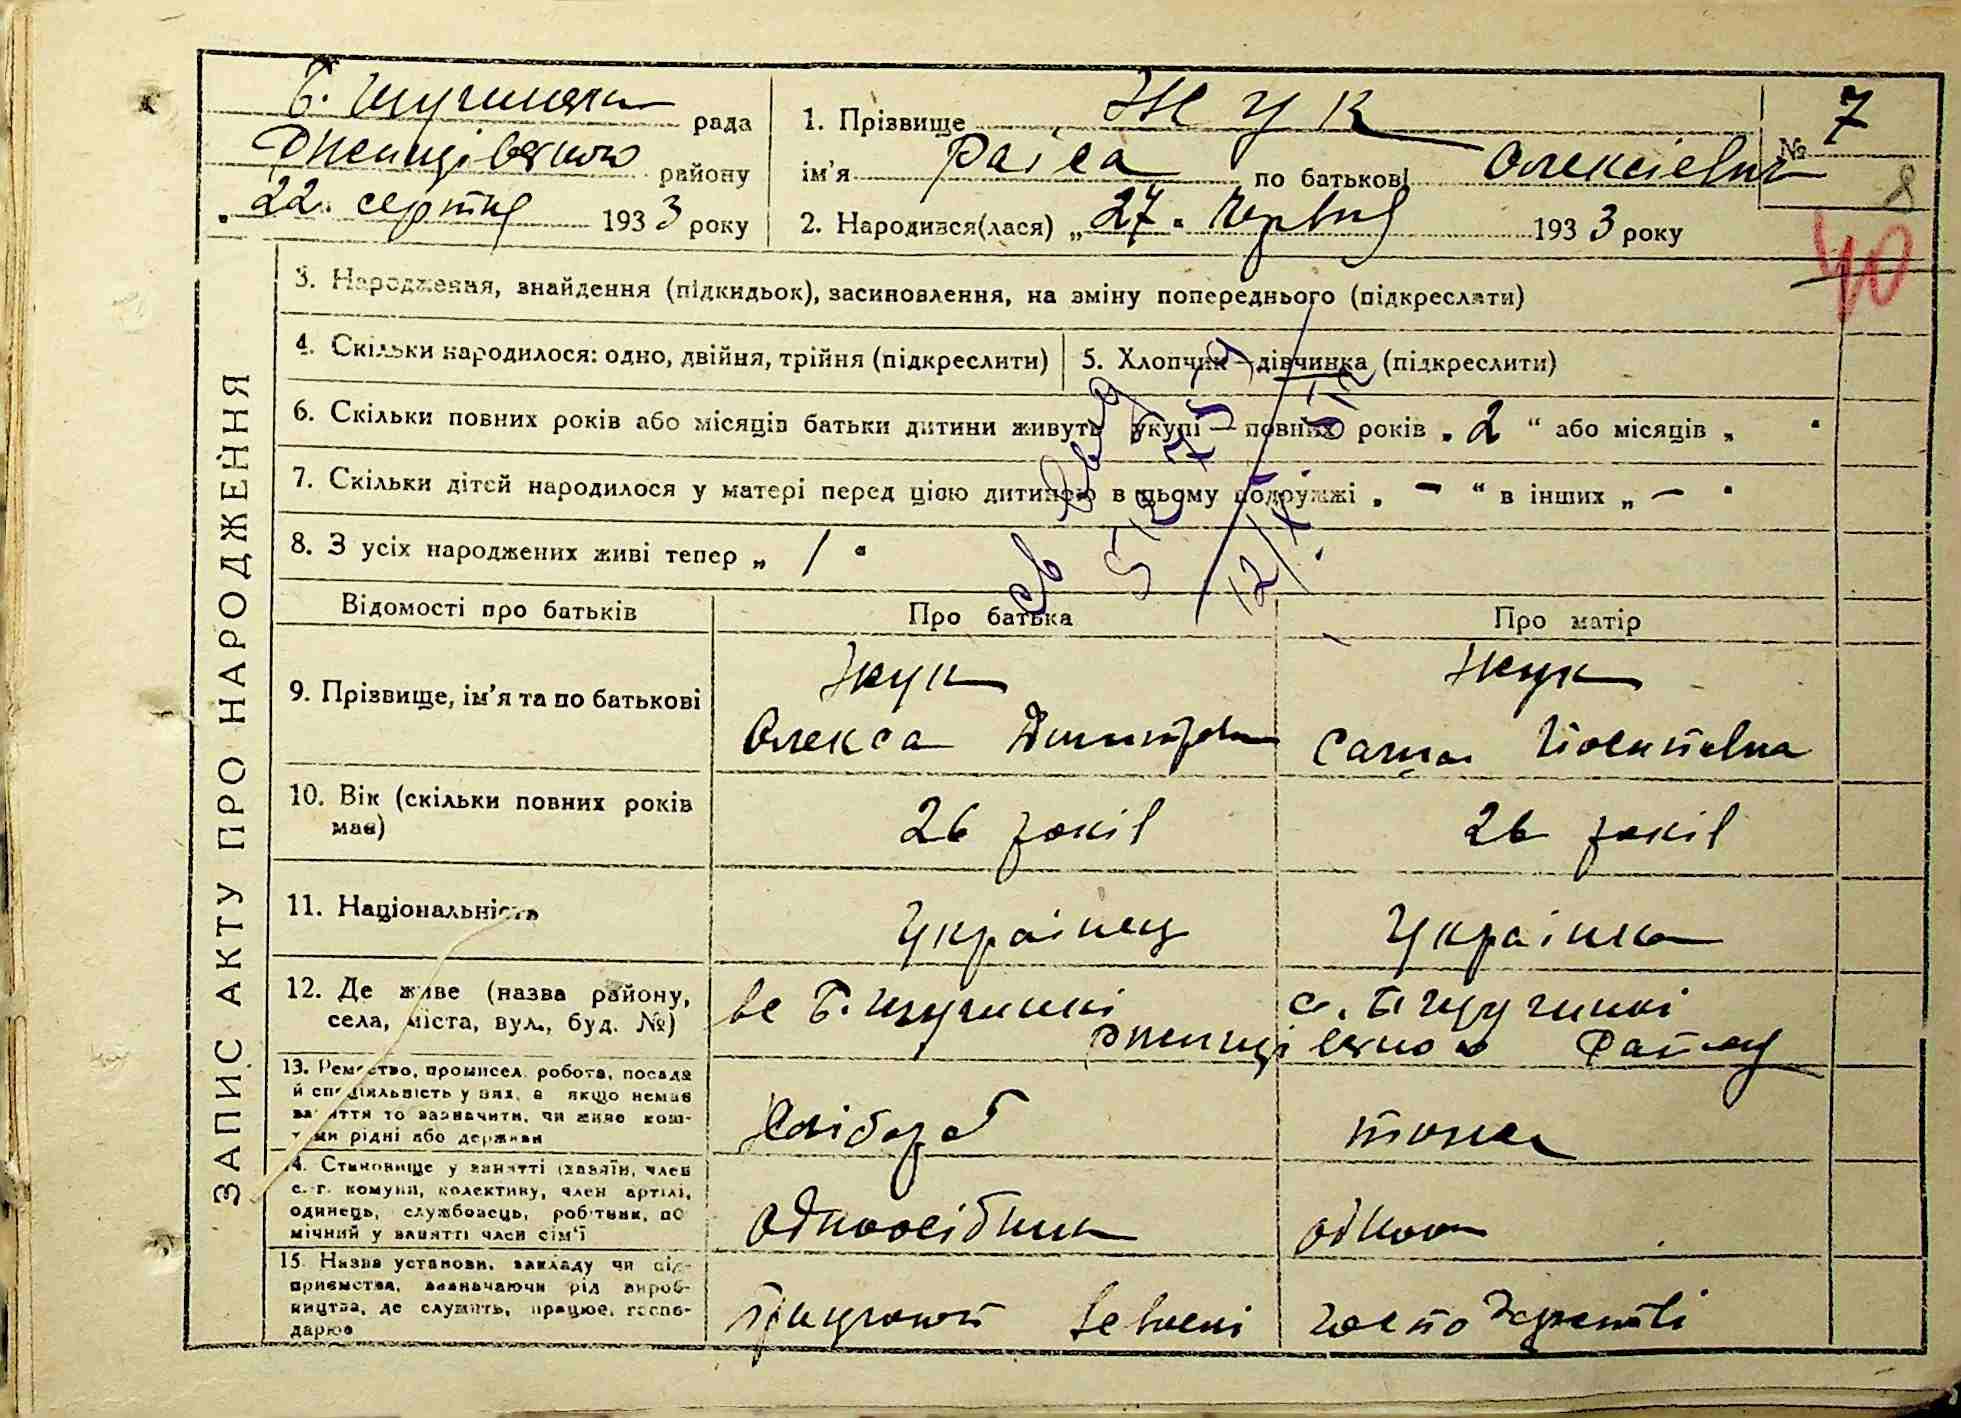 Б. Щучинка рада
району
"22" серпня 1933 року
1. Прізвище Жук
ім'я Раіса по батькові Олексієвна
2. Народився(лася) „27" червня 1933 року
№ 7
8
40
ЗАПИС АКТУ ПРО НАРОДЖЕННЯ
3. Народження, знайдення (підкидьок), засиновлення, на зміну попереднього (підкреслити)
4. Скільки народилося: одно, двійня, трійня (підкреслити)
5. Хлопчик — дівчинка (підкреслити)
6. Скільки повних років або місяців батьки дитини живуть укупі — повних років „ 2 " або місяців „ "
7. Скільки дітей народилося у матері перед цією дитиною в цьому подружжі „ — " в інших „ — "
8. З усіх народжених живі тепер „ 1 "
Відомості про батьків Про батька Про матір
9. Прізвище, ім'я та по батькові
Жук Жук
Олекса
10. Вік (скільки повних років
має)
26 років 26 років
11. Національність
Украінец Украінка
12. Де живе (назва району,
села, міста, вул., буд. №)
вс Б. Щучинкі с. Б Щучинкі
13. Ремество, промисел, робота, посада
й спеціяльність у них, а якщо немає
заняття то зазначити, чи живе кош-
тами рідні або держави
Хлібороб тоже
14. Становище у занятті (хазяїн, член
с.-г. комуни, колективу, член артілі,
одинець, службовець, робітник, по
мічний у занятті член сім'ї
одноосібник
15. Назва установи, закладу чи під-
приємства, зазначаючи рід вироб-
ництва, де служить, працює, госпо-
дарює
Працюют всвоєні господарстві